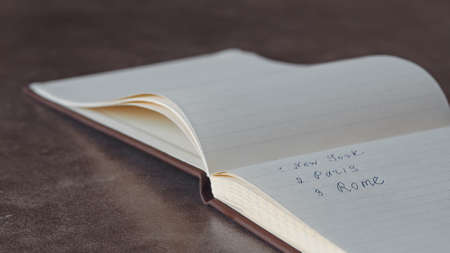 1 New York
2 Paris
3 Rome